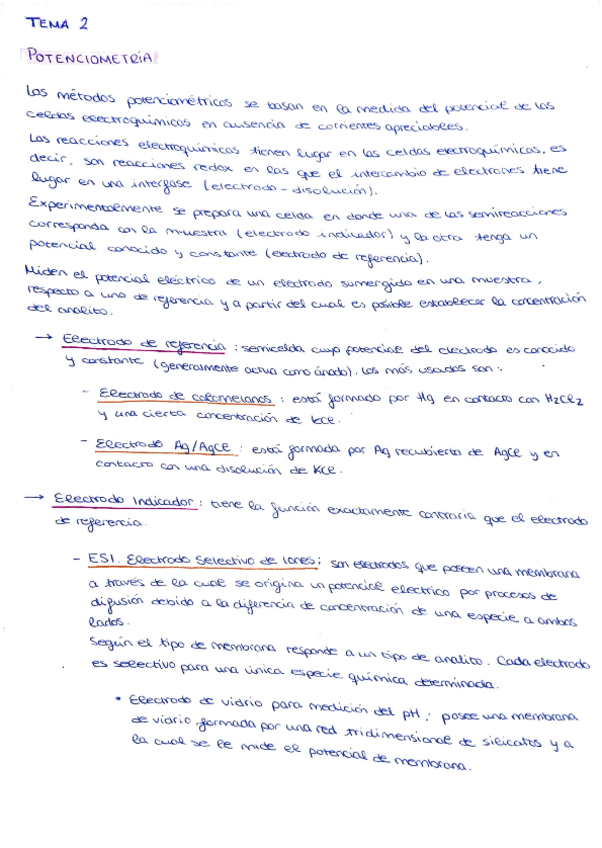 TEMA 2
POTENCIOMETRÍA
Los métodos potenciométricos se basan en la medida del potencial de las
celdas electroquímicas en ausencia de corrientes apreciables.
Las reacciones electroquímicas tienen lugar en las celdas electroquímicas, es
decir, son reacciones redox en las que el intercambio de electrones tiene
lugar en una interfase (electrodo - disolución).
Experimentalmente se prepara una celda en donde una de las semireacciones
corresponda con la muestra (electrodo indicador) y la otra tenga un
potencial conocido y constante (electrodo de referencia).
Miden el potencial eléctrico de un electrodo sumergido en una muestra,
respecto a uno de referencia y a partir del cual es posible establecer la concentración
del analito.
→ Electrodo de referencia : semicelda cuyo potencial del electrodo es conocido
y constante (generalmente actua como ánodo). Los más usados son :
- Electrodo de calomelanos : está formado por Hg en contacto con H2Cl2
y una cierta concentración de KCl.
- Electrodo Ag/AgCl : está formada por Ag recubierto de AgCl y en
contacto con una disolución de KCl.
→ Electrodo Indicador : tiene la función exactamente contraria que el electrodo
de referencia.
- ESI. Electrodo Selectivo de Iones : son electrodos que poseen una membrana
a través de la cual se origina un potencial electrico por procesos de
difusión debido a la diferencia de concentración de una especie a ambos
lados.
Según el tipo de membrana responde a un tipo de analito. Cada electrodo
es selectivo para una única especie química determinada.
• Electrodo de vidrio para medición del pH : posee una membrana
de vidrio formada por una red tridimensional de silicatos y a
la cual se le mide el potencial de membrana.